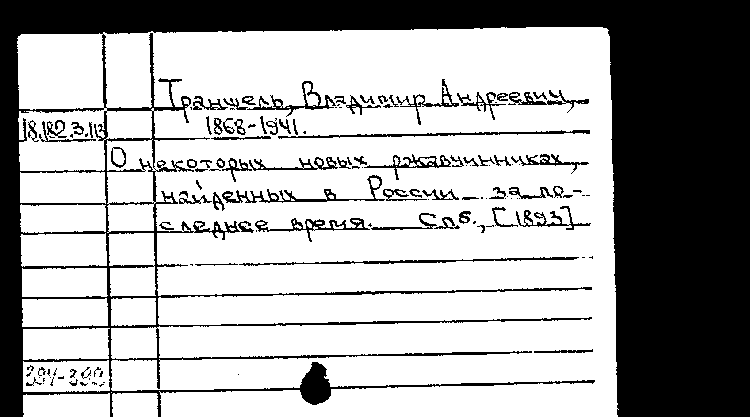 Траншель, Владимир Андреевич,
18.182.3.113 1868-1941.
О некоторых новых ржавчинниках,
найденных в России за по-
следнее время. Спб., [1893]
394-399